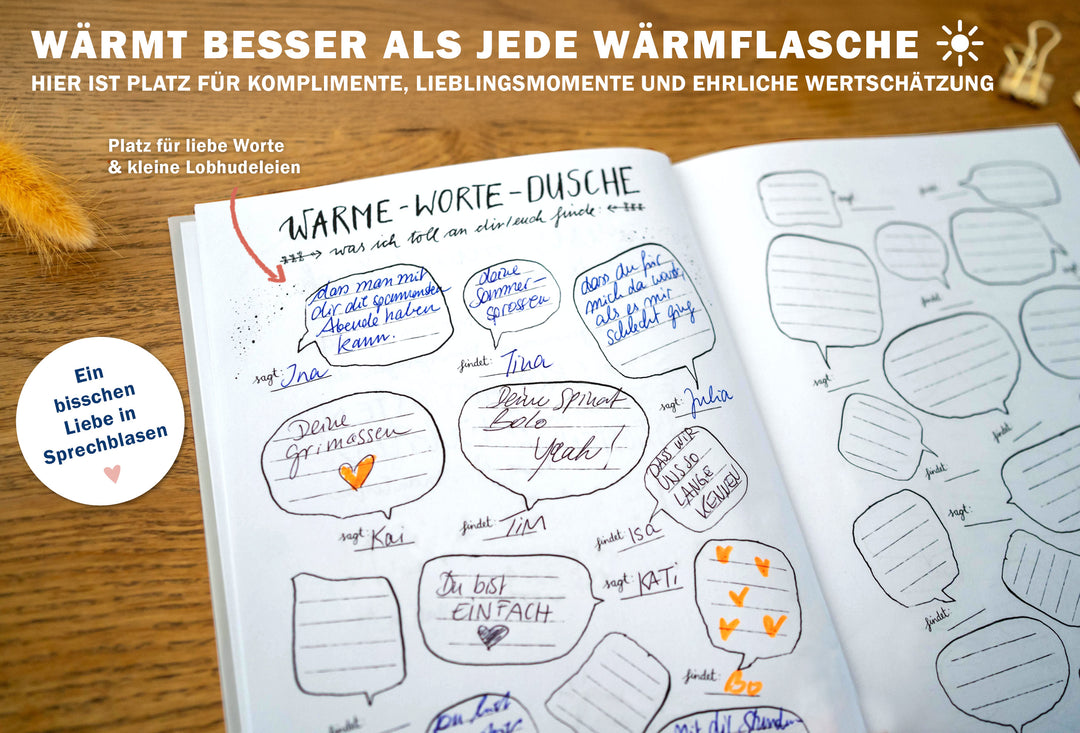 WÄRMT BESSER ALS JEDE WÄRMFLASCHE
HIER IST PLATZ FÜR KOMPLIMENTE, LIEBLINGSMOMENTE UND EHRLICHE WERTSCHÄTZUNG
Platz für liebe Worte
& kleine Lobhudeleien
WARME-WORTE-DUSCHE
was ich toll an dir/euch finde:
dass man mit
dir die spannendsten
Abende haben
kann.
sagt: Ina
deine
Sommer-
sprossen
findet: Tina
dass du für
mich da warst,
als es mir
schlecht ging
sagt: Julia
Ein
bisschen
Liebe in
Sprechblasen
Deine
grimassen
sagt: Kai
Deine Spinat
Bolo
Yeah!
findet: TIM
DASS WIR
UNS SO
LANGE
KENNEN
findet: ISA
Du bist
EINFACH
sagt: KATI
findet: Bo
findet:
Du bist
mit dir Stunden-
sagt:
findet:
sagt
findet:
sagt:
findet:
findet:
sagt:
findet: